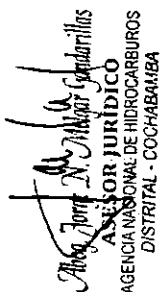 Abog. Jorge N. Melgar Gandarillas
ASESOR JURÍDICO
AGENCIA NACIONAL DE HIDROCARBUROS
DISTRITAL - COCHABAMBA